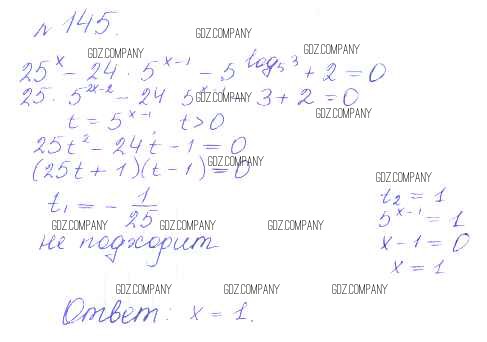 № 145.
GDZ.COMPANY
GDZ.COMPANY GDZ.COMPANY
25^x - 24 · 5^{x-1} - 5^{log_5 3} + 2 = 0
25 · 5^{2x-2} - 24 5^{x-1} - 3 + 2 = 0
GDZ.COMPANY
GDZ.COMPANY
t = 5^{x-1} t > 0
25t² - 24t - 1 = 0
GDZ.COMPANY
(25t + 1)(t - 1) = 0
GDZ.COMPANY
t₁ = - 1/25
t₂ = 1
GDZ.COMPANY GDZ.COMPANY GDZ.COMPANY GDZ.COMPANY
5^{x-1} = 1
не подходит
x - 1 = 0
x = 1
GDZ.COMPANY GDZ.COMPANY GDZ.COMPANY
Ответ: x = 1.